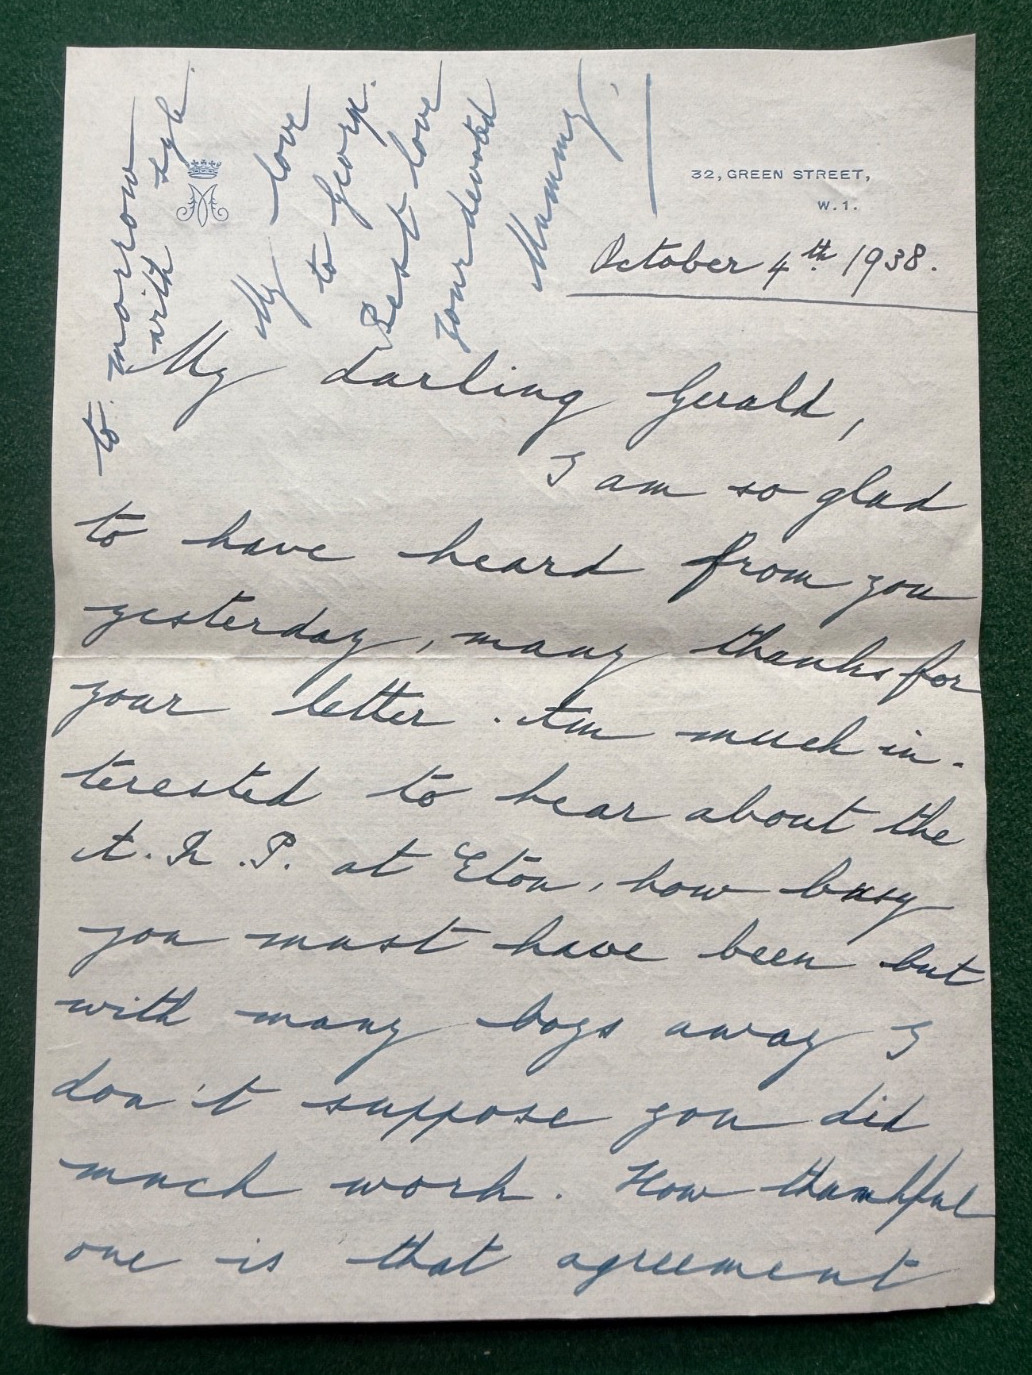 32, GREEN STREET,
W.1.
October 4th 1938.
My darling Gerald,
I am so glad
to have heard from you
yesterday, many thanks for
your letter. Am much in-
terested to hear about the
A. R. P. at Eton, how busy
you must have been but
with many boys away I
don't suppose you did
much work. How thankful
one is that agreement
to morrow
with
My love
to Georg.
Best love
your devoted
Mummy.